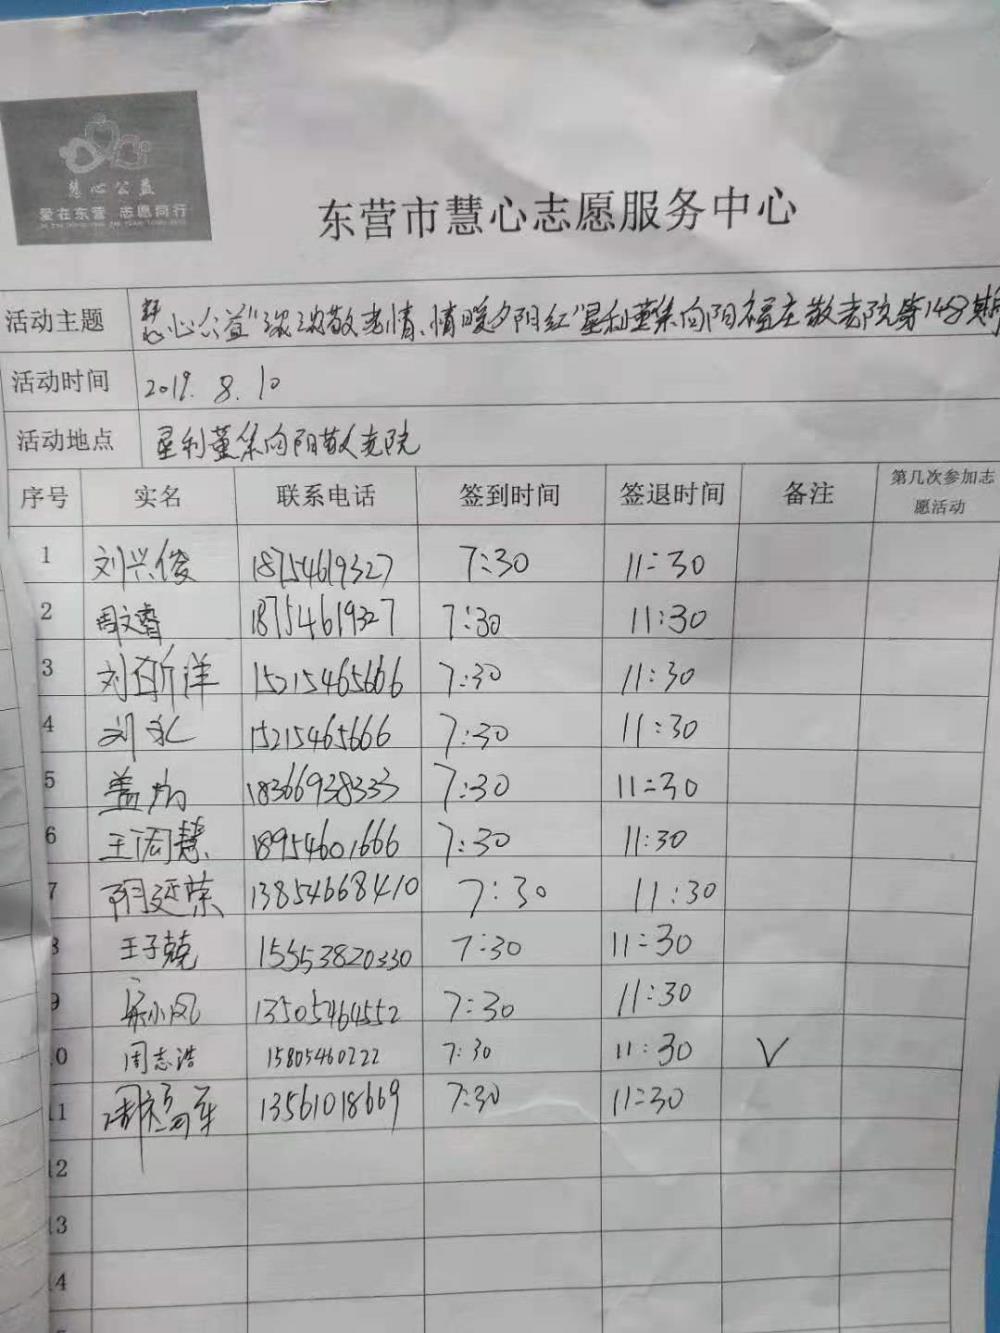 慧心公益
爱在东营 志愿同行
东营市慧心志愿服务中心
活动主题 慧心公益"浓浓敬老情、情暖夕阳红"垦利董集向阳福庄敬老院第148期
活动时间 2019.8.10
活动地点 垦利董集向阳敬老院
序号 实名 联系电话 签到时间 签退时间 备注 第几次参加志愿活动
1 刘兴俊 18754619327 7:30 11:30
2 周文睿 18754619327 7:30 11:30
3 刘 洋 15215465666 7:30 11:30
4 刘 15215465666 7:30 11:30
5 盖 18366938333 7:30 11:30
6 王 慧 18954601666 7:30 11:30
7 阴廷荣 13854668410 7:30 11:30
8 王子兢 15553820330 7:30 11:30
9 小风 13505464552 7:30 11:30
10 周志浩 15805460222 7:30 11:30 √
11 13561018669 7:30 11:30
12
13
14